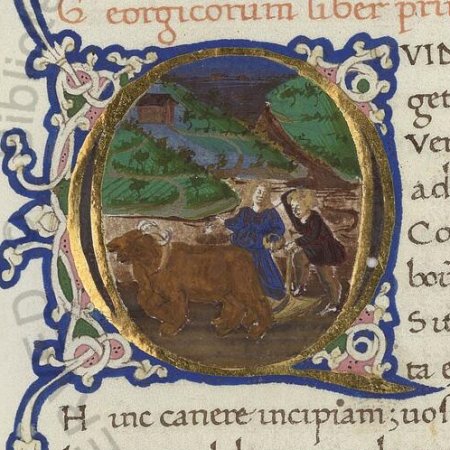 Georgicorum liber pri
QVID
get
Ver
ad
Co
bor
Sit
ta e
Hinc canere incipiam; uos